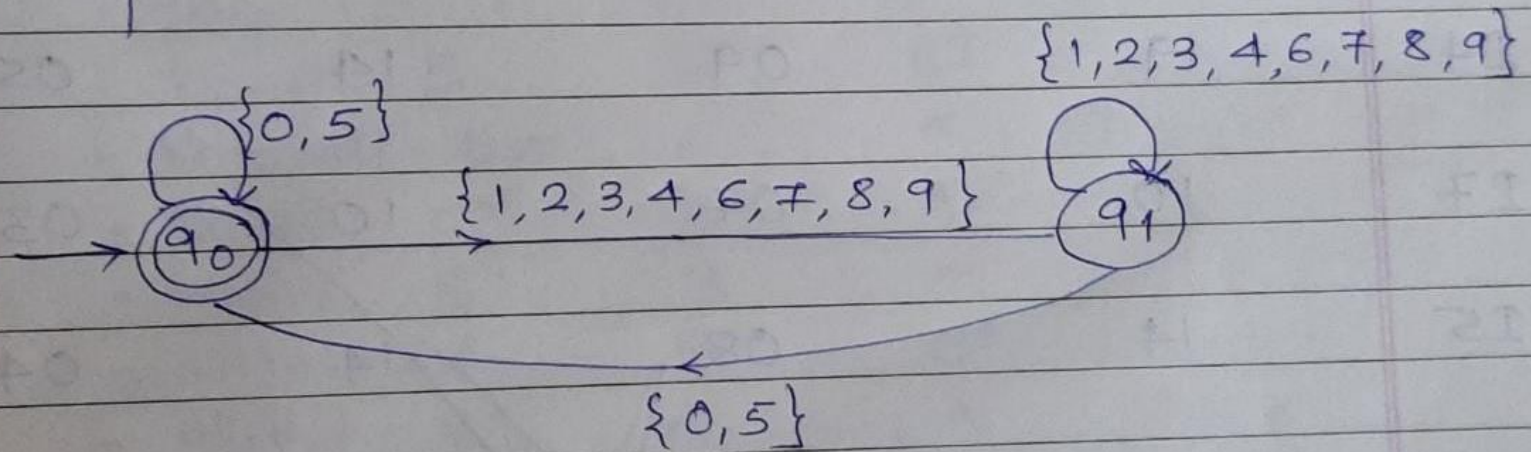 {1,2,3,4,6,7,8,9}
{0,5}
{1,2,3,4,6,7,8,9}
q0
q1
{0,5}